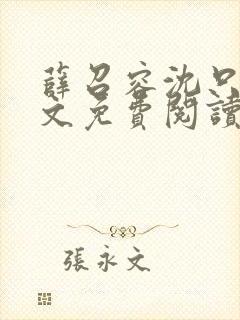 薛召容沈只
文免費閱讀
張永文